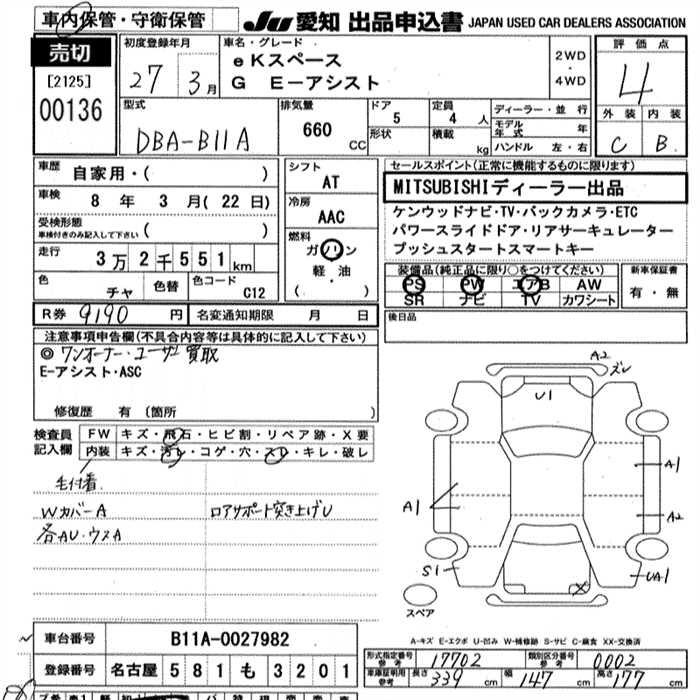 車内保管・守衛保管
JU 愛知 出品申込書 JAPAN USED CAR DEALERS ASSOCIATION
売切
[2125]
00136
初度登録年月
27 3月
車名・グレード
eKスペース
G E-アシスト
2WD
・
4WD
評価点
4
外装 内装
C B
型式
DBA-B11A
排気量
660 CC
ドア
5
形状
定員
4 人
積載 kg
ディーラー・並行
モデル年式 年
ハンドル 左・右
車歴
自家用・( )
車検
8 年 3 月 ( 22 日)
受検形態
車検付きのみ記入して下さい ( )
走行
3万2千551km
色
チャ
色替
色コード
C12
シフト
AT
冷房
AAC
燃料
ガソリン
軽・油
( )
セールスポイント(正常に機能するものに限ります)
MITSUBISHIディーラー出品
ケンウッドナビ・TV・バックカメラ・ETC
パワースライドドア・リアサーキュレーター
プッシュスタートスマートキー
装備品(純正品に限り○をつけてください)
PS PW エアB AW
SR ナビ TV カワシート
新車保証書
有・無
R券 9190 円
名変通知期限 月 日
後日品
注意事項申告欄(不具合内容等は具体的に記入して下さい)
◎ ワンオーナー・ユーザー買取
E-アシスト・ASC
修復歴 有 (箇所 )
検査員記入欄
FW キズ・飛石・ヒビ割・リペア跡・X要
内装 キズ・汚レ・コゲ・穴・スレ・キレ・破レ
毛付着
Wカバー A
各AU・ウスA
ロアサポート突き上げU
A2
ズレ
U1
A1
A1
A2
S1
UA1
X
スペア
A-キズ E-エクボ U-凹み W-補修跡 S-サビ C-腐食 XX-交換済
車台番号 B11A-0027982
登録番号 名古屋 581 も 3201
形式指定番号
参考 17702
類別区分番号
参考 0002
車庫証明用
参考
長さ 339 cm
幅 147 cm
高さ 177 cm